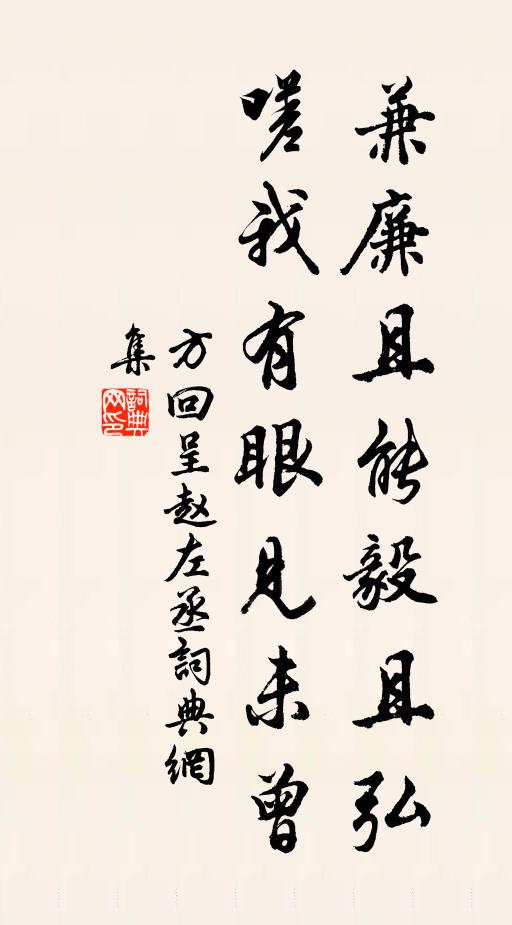 兼廉且能毅且弘
嗟我有眼見未曾
方回呈赵左丞詞典網
集
詞典
网印